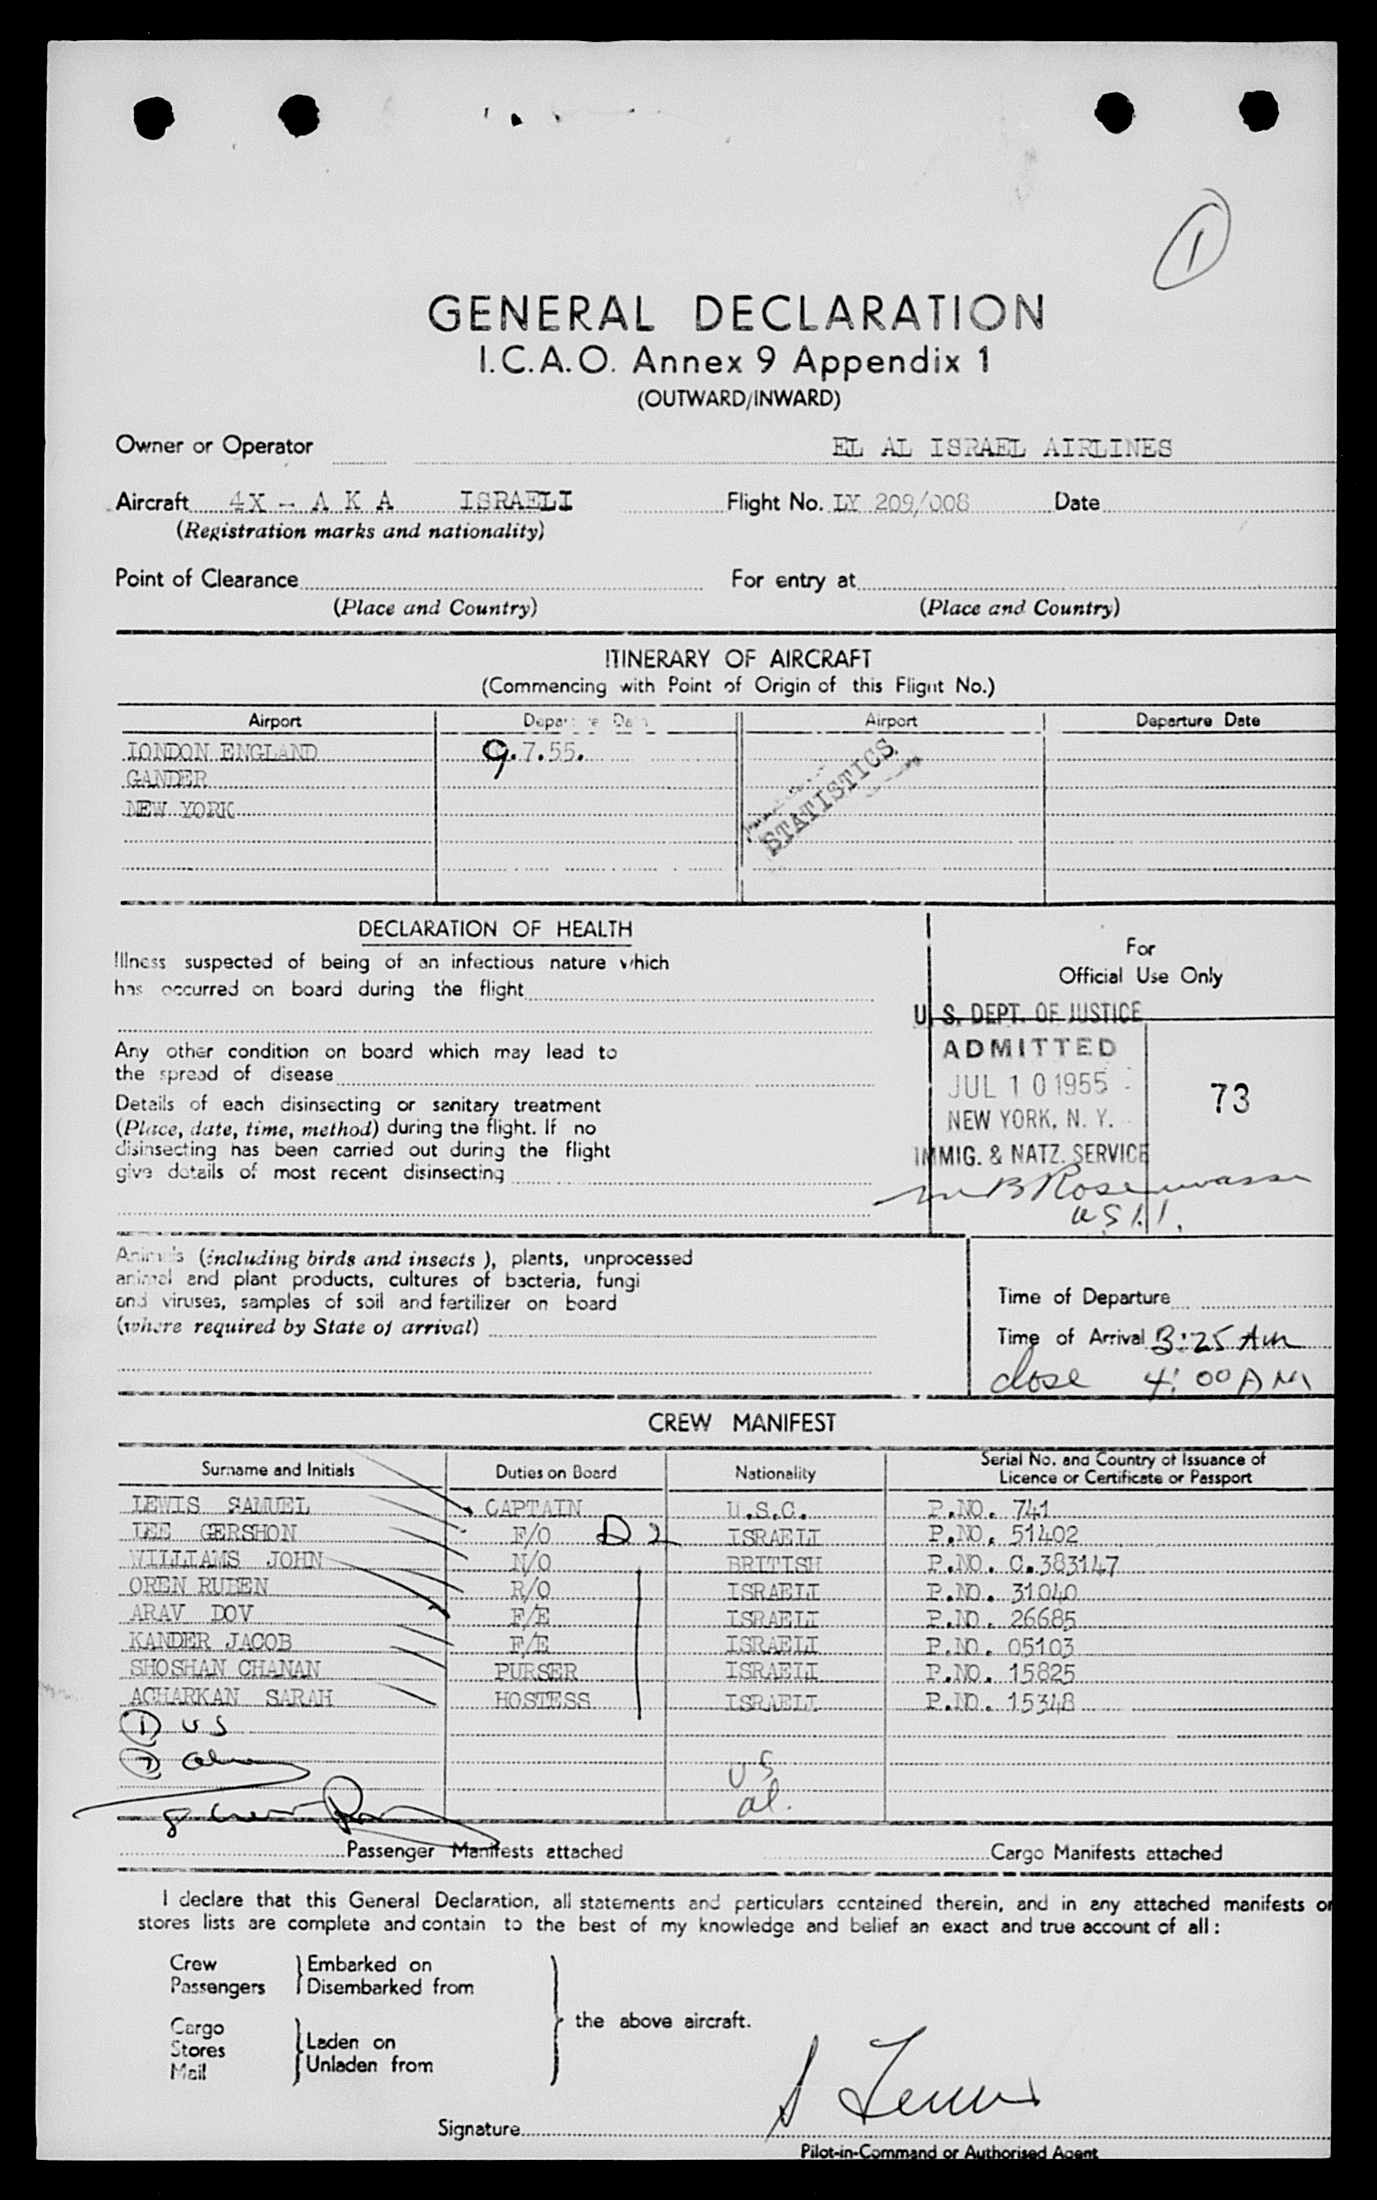 1
GENERAL DECLARATION
I.C.A.O. Annex 9 Appendix 1
(OUTWARD/INWARD)
Owner or Operator EL AL ISRAEL AIRLINES
Aircraft 4X - A K A ISRAELI Flight No. LY 209/008 Date
(Registration marks and nationality)
Point of Clearance For entry at
(Place and Country) (Place and Country)
ITINERARY OF AIRCRAFT
(Commencing with Point of Origin of this Flight No.)
Airport Departure Date Airport Departure Date
LONDON ENGLAND 9.7.55.
GANDER
NEW YORK
STATISTICS
DECLARATION OF HEALTH
Illness suspected of being of an infectious nature which
has occurred on board during the flight
Any other condition on board which may lead to
the spread of disease
Details of each disinsecting or sanitary treatment
(Place, date, time, method) during the flight. If no
disinsecting has been carried out during the flight
give details of most recent disinsecting
For
Official Use Only
U. S. DEPT. OF JUSTICE
ADMITTED
JUL 10 1955
NEW YORK, N. Y.
IMMIG. & NATZ. SERVICE
73
Animals (including birds and insects ), plants, unprocessed
animal and plant products, cultures of bacteria, fungi
and viruses, samples of soil and fertilizer on board
(where required by State of arrival)
Time of Departure
Time of Arrival 3:25 AM
close 4:00 AM
CREW MANIFEST
Surname and Initials Duties on Board Nationality Serial No. and Country of Issuance of Licence or Certificate or Passport
LEWIS SAMUEL CAPTAIN U.S.C. P.NO. 741
LEE GERSHON F/O D2 ISRAELI P.NO. 51402
WILLIAMS JOHN N/O BRITISH P.NO. C.383147
OREN RUBEN R/O ISRAELI P.NO. 31040
ARAV DOV F/E ISRAELI P.NO. 26685
KANDER JACOB F/E ISRAELI P.NO. 05103
SHOSHAN CHANAN PURSER ISRAELI P.NO. 15825
ACHARKAN SARAH HOSTESS ISRAELI P.NO. 15348
1 US
7
US
al.
Passenger Manifests attached Cargo Manifests attached
I declare that this General Declaration, all statements and particulars contained therein, and in any attached manifests or
stores lists are complete and contain to the best of my knowledge and belief an exact and true account of all :
Crew Embarked on
Passengers Disembarked from
the above aircraft.
Cargo
Stores Laden on
Mail Unladen from
S Lewis
Signature
Pilot-in-Command or Authorised Agent